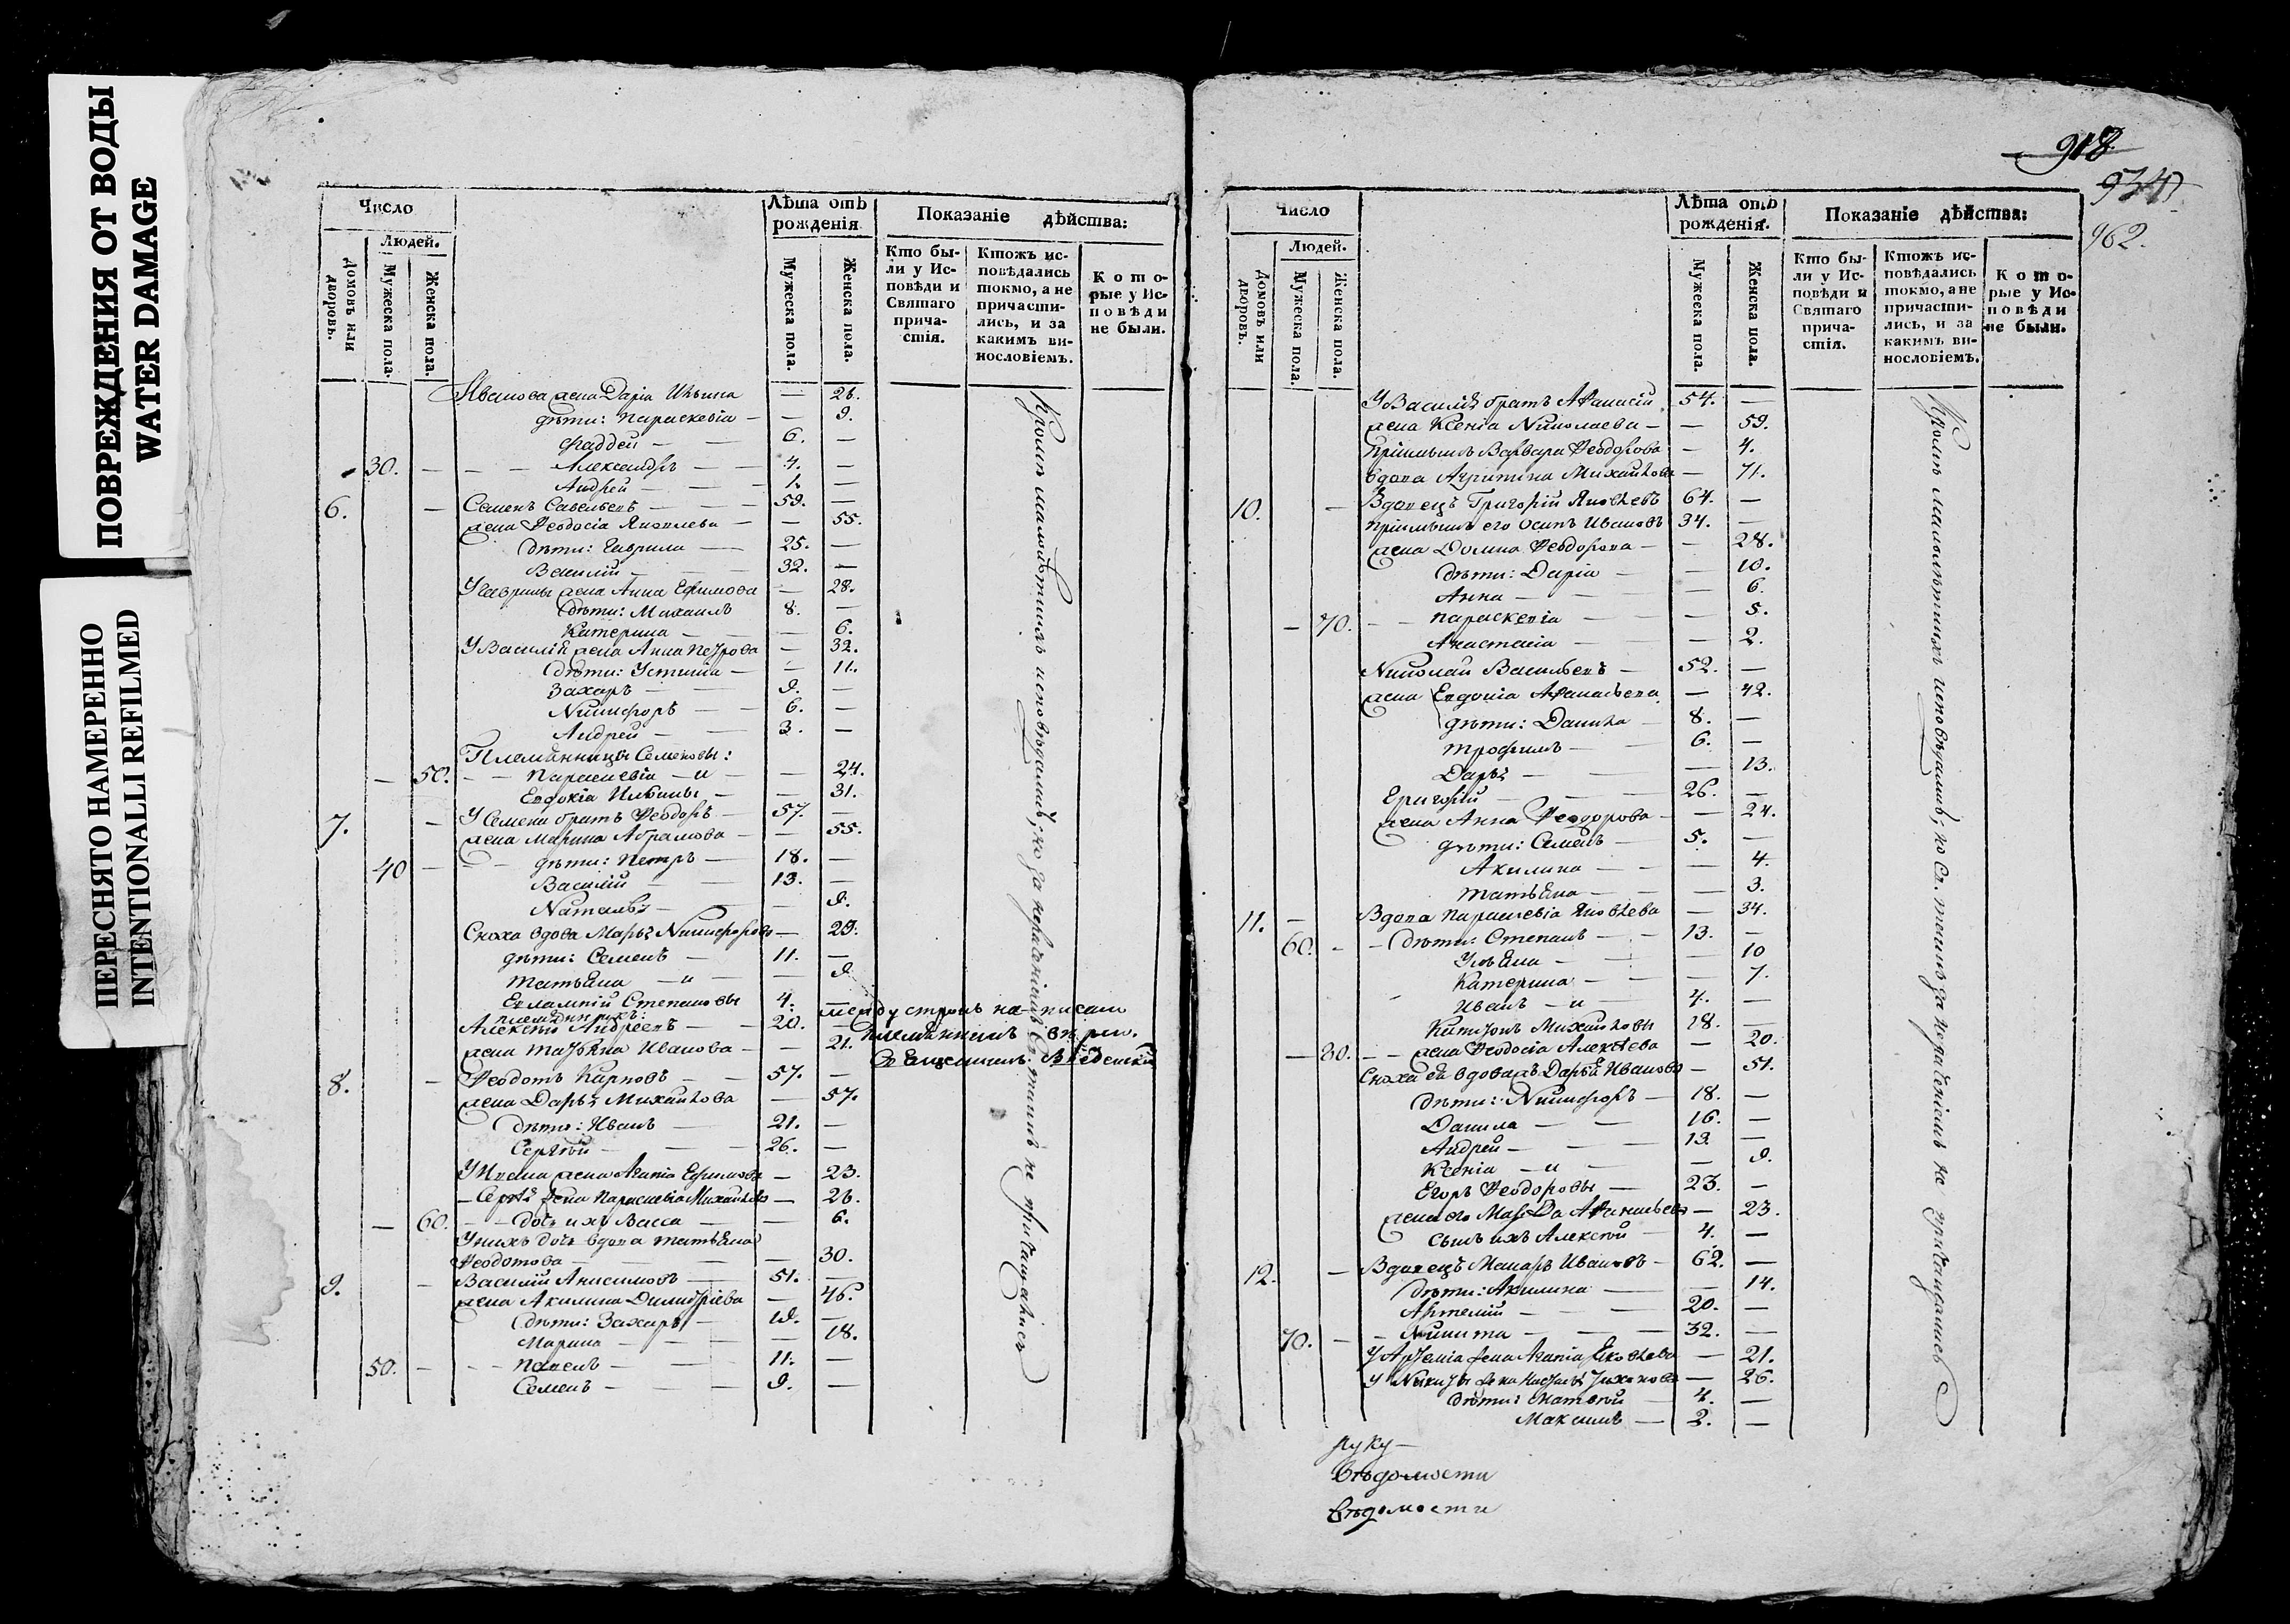 ПОВРЕЖДЕНИЯ ОТ ВОДЫ
WATER DAMAGE
ПЕРЕСНЯТО НАМЕРЕННО
INTENTIONALLI REFILMED
Число
Людей.
Домовъ или дворовъ.
Мужеска пола.
Женска пола.
Лѣта отъ рожденія
Мужеска пола.
Женска пола.
Показаніе дѣйства:
Кто были у Исповѣди и Святаго причастія.
Ктожъ исповѣдались токмо, а не причастились, и за какимъ винословіемъ.
Которые у Исповѣди не были.
Иванова жена Дарiа Ильина — 26.
дѣти: Параскевіа — — 9.
Фаддей — — 6. —
30. — — Александръ — — 4. —
Андрей — — 1. —
6. — Семенъ Савельевъ — — 59. —
жена Феодосіа Яковлева — — 55.
дѣти: Гаврила — 25. —
Василій — 32. —
У Гаврилы жена Анна Ефимова — 28.
дѣти: Михаилъ 8. —
Катерина — — 6.
У Василія жена Анна Петрова — 32.
дѣти: Устинia — — 11.
Захаръ — 9. —
Никифоръ — — 6. —
Андрей — — 3. —
Племянницы Семеновы:
— 50. — — Параскевіа — и — — 24.
Евдокіа Ильины — — 31.
7. — У Семена братъ Феодоръ — 57. —
жена Марина Абрамова — — 55.
40 — — дѣти: Петръ — 18. —
Василій — — 13. —
Наталья — — 9.
Сноха вдова Марья Никифорова — 29.
дѣти: Семенъ — 11. —
Татьяна — и — — 9
Евлампій Степановы 4. —
племянникъ:
между строкъ написано
Алексѣй Андреевъ — — 20. —
племянникъ вѣрно.
жена Татьяна Иванова — — 21.
Священникъ Введенскій
8. — Феодотъ Карповъ — — 57. —
жена Дарья Михайлова — 57.
дѣти: Иванъ — 21. —
Сергѣй — — 26. —
У Ивана жена Агапіа Ефимова — 23.
— Сергѣя жена Параскевіа Михайлова — 26.
— 60. — — дочь ихъ Васса — — 6.
У нихъ дочь вдова Татьяна
Феодотова — — — 30.
9. — Василій Анисимовъ — 51. —
жена Акилина Димитріева — 46.
дѣти: Захаръ — 19. —
Марина — — — 18.
50. — — — Павелъ — — 11. —
Семенъ — — — 9. —
Кромѣ малолѣтнихъ исповѣдались; но за нераченіемъ Св. Таинъ не причащались
918
934
962.
Число
Людей.
Домовъ или дворовъ.
Мужеска пола.
Женска пола.
Лѣта отъ рожденія.
Мужеска пола.
Женска пола.
Показаніе дѣйства:
Кто были у Исповѣди и Святаго причастія.
Ктожъ исповѣдались токмо, а не причастились, и за какимъ винословіемъ.
Которые у Исповѣди не были.
У Василія братъ Афанасій 54. —
жена Ксеніа Николаева — — 59.
пріимышъ Варвара Феодорова — 4.
вдова Агрипина Михайлова — 71.
10. — Вдовецъ Григорій Яковлевъ 64. —
пріимышъ его Осипъ Ивановъ 34. —
жена Домна Феодорова — — 28.
дѣти: Дарiа — — 10.
Анна — — — 6.
— 70. — — Параскевіа — — — 5.
Анастасіа — — 2.
Николай Васильевъ — 52. —
жена Евдокіа Афанасьева — 42.
дѣти: Данила — 8. —
Трофимъ — — 6. —
Дарья — — — 13.
Григорій — — — 26. —
жена Анна Феодорова — — 24.
дѣти: Семенъ — 5. —
Акилина — — — 4.
Татьяна — — — 3.
11. — Вдова Параскевіа Яковлева — 34.
60. — — дѣти: Степанъ — — 13. —
Ульяна — — 10
Катерина — — — 7.
Иванъ — и — 4. —
Капитонъ Михайловы 28. —
— 80. — — жена Феодосіа Алексѣева — 20.
Сноха ея вдова жъ Дарья Иванова — 51.
дѣти: Никифоръ — 18. —
Данила — — 16. —
Андрей — — — 13. —
Ксеніа — и — — 9.
Егоръ Феодоровы — 23. —
жена его Марѳа Афанасьева — 23.
сынъ ихъ Алексѣй — 4. —
12. — Вдовецъ Макаръ Ивановъ — 62. —
дѣти: Акилина — — 14.
Артемій — — — 20. —
70. — — Никита — — — 32. —
У Артеміа жена Агапіа Яковлева — 21.
У Никиты жена Настасья Тихонова — 26.
дѣти: Матвѣй — 4. —
Максимъ — 2. —
Кромѣ малолѣтнихъ исповѣдались; но Св. Таинъ за нераченіемъ не причащались
Луку —
Вѣдомости
Вѣдомости